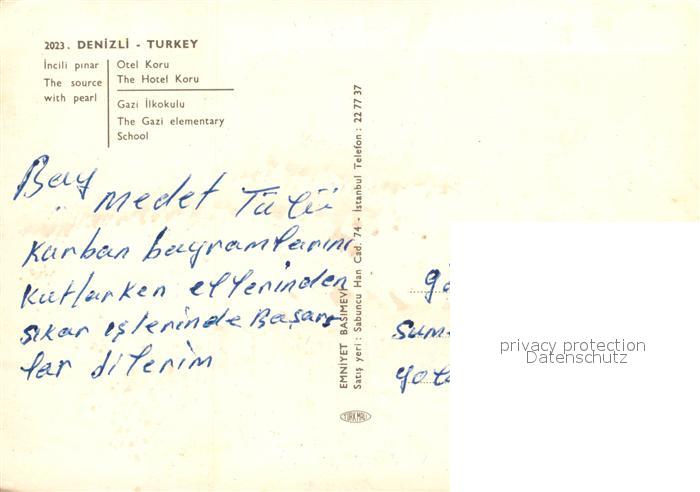 2023. DENİZLİ - TURKEY
İncili pınar
The source
with pearl
Otel Koru
The Hotel Koru
Gazi İlkokulu
The Gazi elementary
School
Bay
Medet Tülü
Kurban bayramlarını
Kutlarken ellerinden
sıkar işlerinde Başarı
lar dilerim
EMNİYET BASIMEVİ
Satış yeri: Sabuncu Han Cad. 74 - İstanbul Telefon: 22 77 37
TÜRK MALI
privacy protection
Datenschutz